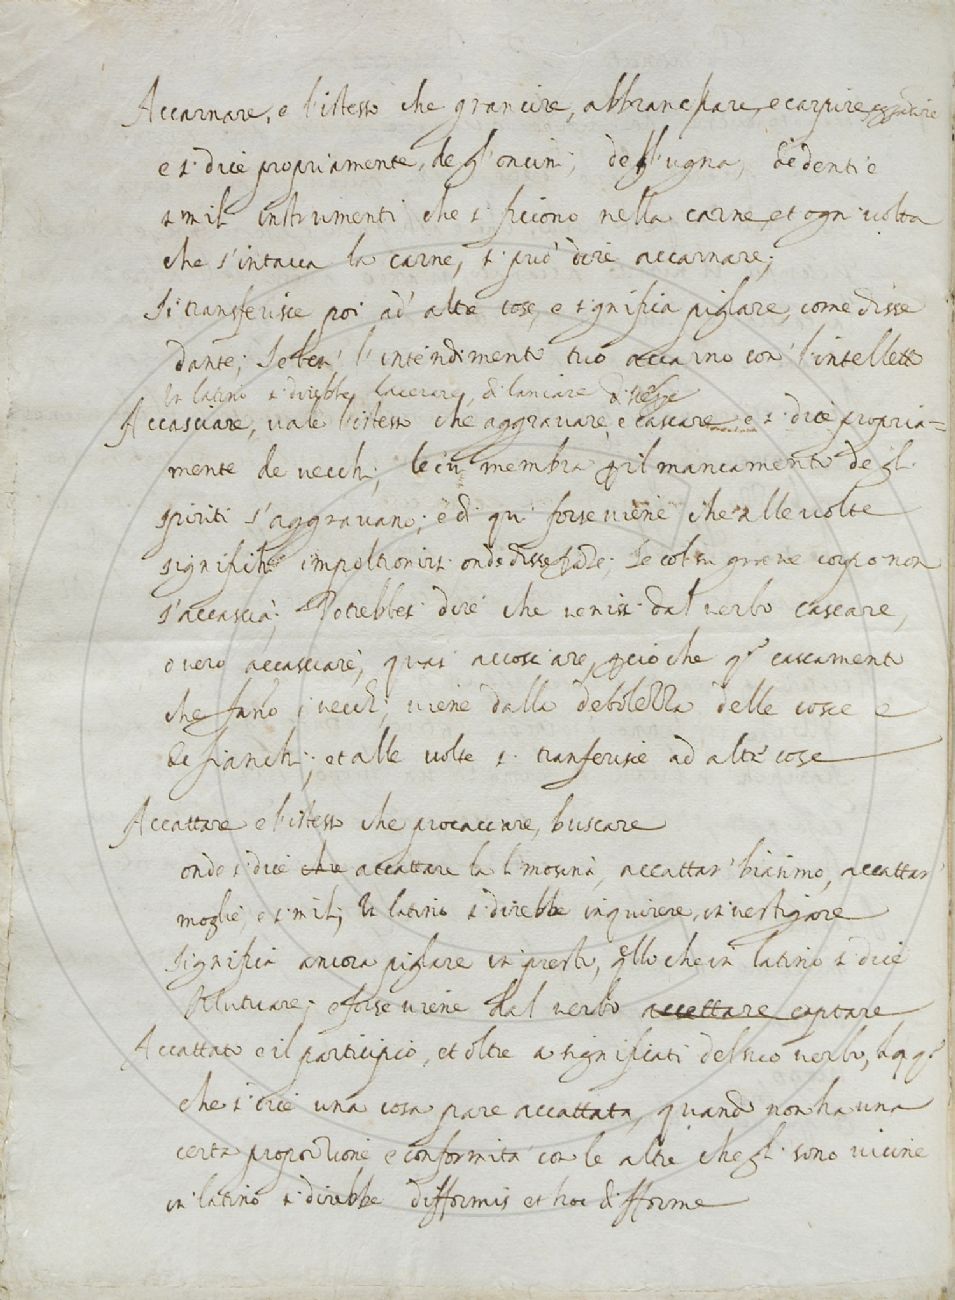 Accarnare, e l'istesso che grancire, abbrancpare, e carpire,
e si dice propriamente, degl'oncini, dell'ugna, de denti e
simili instrumenti che si ficcono nella carne, et ogni volta
che s'intacca la carne, si può dire accarnare;
Si transferisce poi ad' altre cose, e significa piglare, come disse
dante; Se ben l'intendimento tuo accarno con l'intelletto
In latino si direbbe, lacerare, dilaniare
Accasciare, vale l'istesso che aggravare, e cascare, e si dice propria=
mente de vecchi, le cui membra p il mancamento degl
spiriti s'aggravano; e di qui forse viene che alle volte
significhi impoltronirsi onde disse Se col suo grave corpo non
s'accascia; Potrebbesi dire che venissi dal verbo cascare,
overo accasciare, quasi accosciare, pcio che qo cascamento
che fano i vecchi, viene dalla debolezza delle coscie e
de fianchi; et alle volte si transferisce ad altre cose
Accattare e l'istesso che procacciare, buscare
onde si dice che accattare la limosina, accattar' biasimo, accattar'
moglie, e simili; In latino si direbbe inquirere, investigare
Significa ancora piglare in presto, qllo che in latino si dice
Mutuare; e forse viene dal verbo accettare captare
Accattato e il participio, et oltre a significati del suo verbo, ha qo
che si dice una cosa pare accattata, quando non ha una
certa proporzione e conformità con le altre che gli sono vicine
in latino si direbbe difformis et hoc difforme